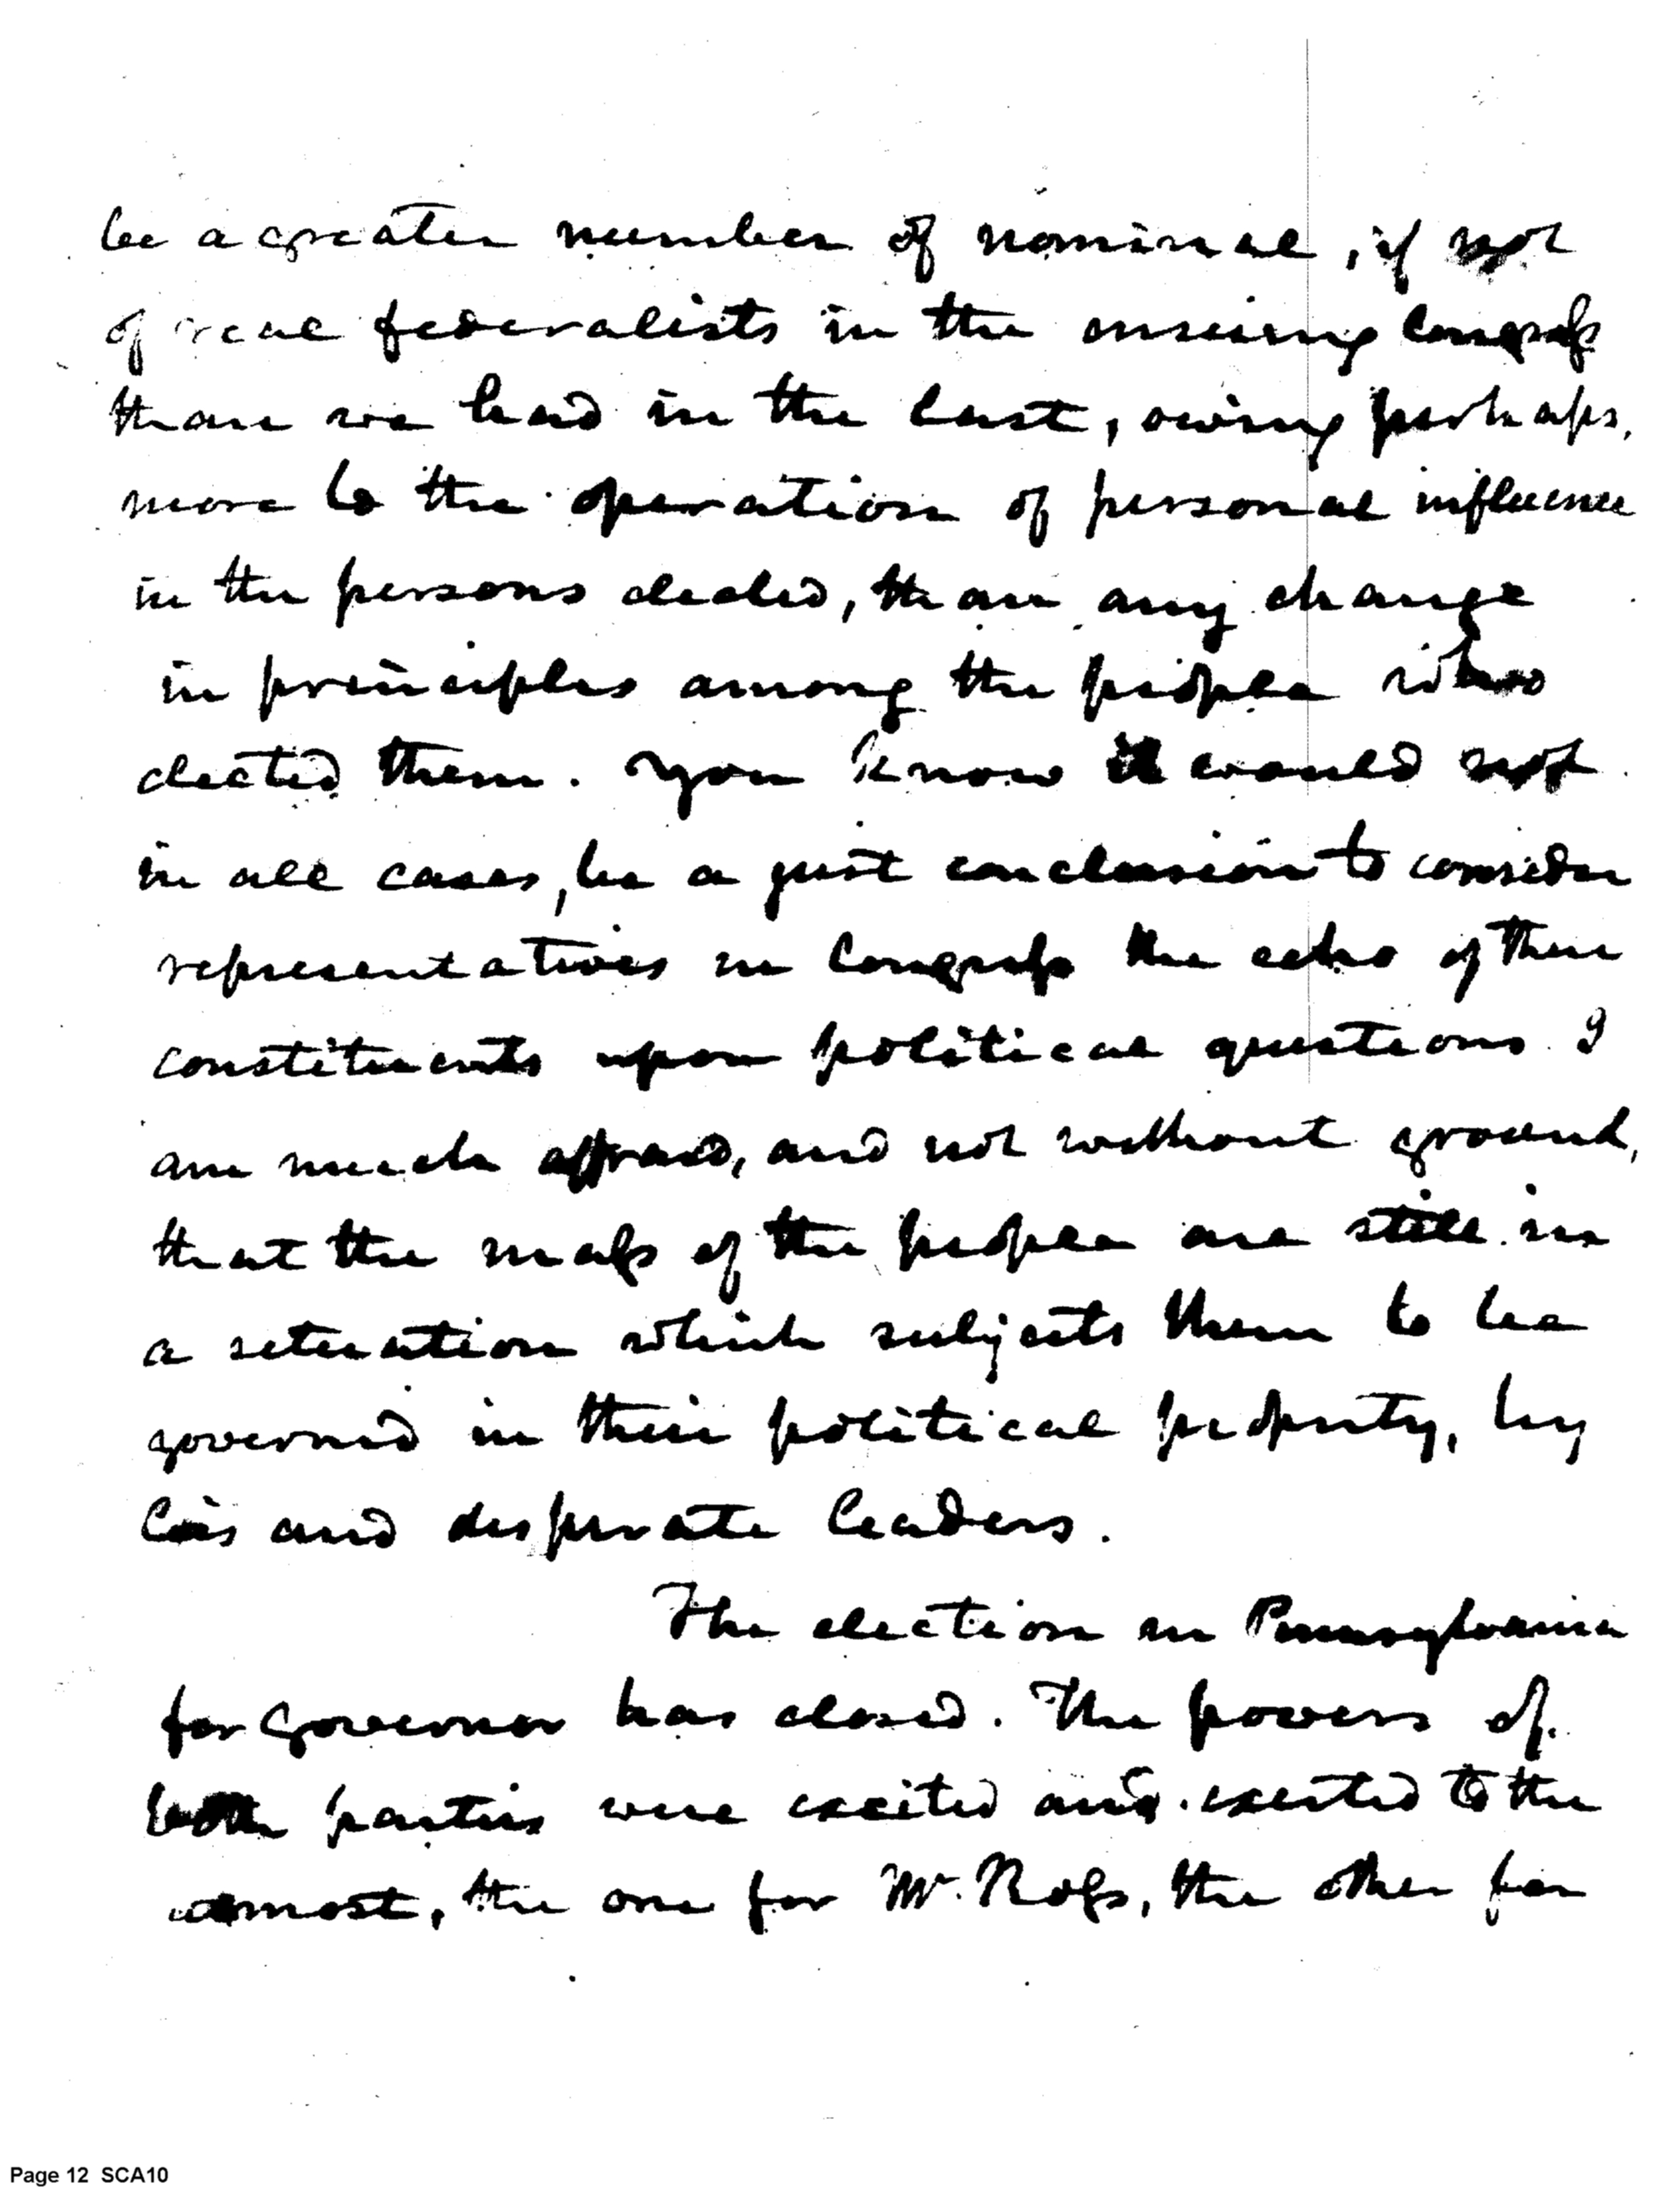 be a greater number of nominal, if not
of real federalists in the ensuing Congress
than we had in the last, owing perhaps,
more to the operation of personal influence
in the persons elected, than any change
in principles among the people who
elected them. You know it would not
in all cases, be a just conclusion to consider
representatives in Congress the echo of their
constituents upon political questions. I
am much affraid, and not without ground,
that the mass of the people are still in
a situation which subjects them to be
governed in their political, by
lies and desperate leaders.
The election in Pennsylvania
for Governor has closed. The powers of
both parties were excited and exerted to the
utmost, the one for Mr. Ross, the other for
Page 12 SCA10